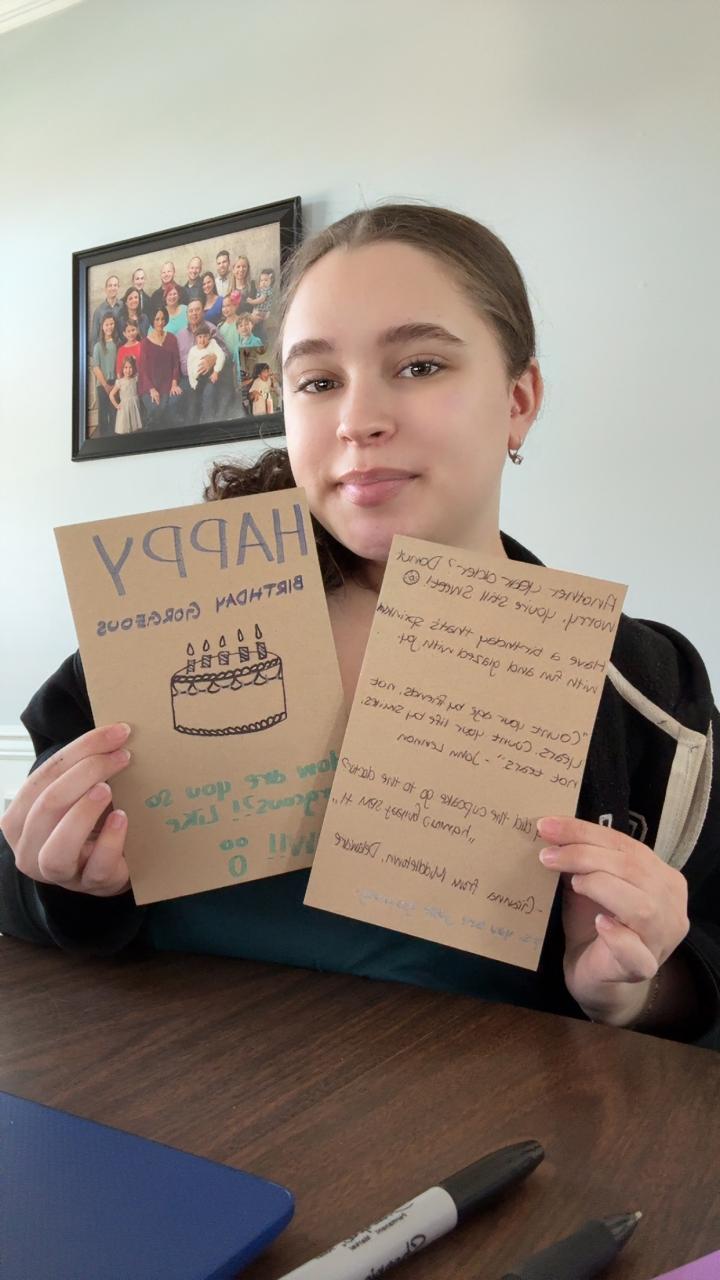 HAPPY
BIRTHDAY GORGEOUS
How are you so
gorgeous?! Like
oo
O
Another year older? Donut
worry, you're still sweet! ☺
Have a birthday that's sprinkled
with fun and glazed with joy.
"Count your age by friends, not
years. Count your life by smiles,
not tears." - John Lennon
did the cupcake go to the doctor?
- Gianna from Middletown, Delaware
you are
Sharpie